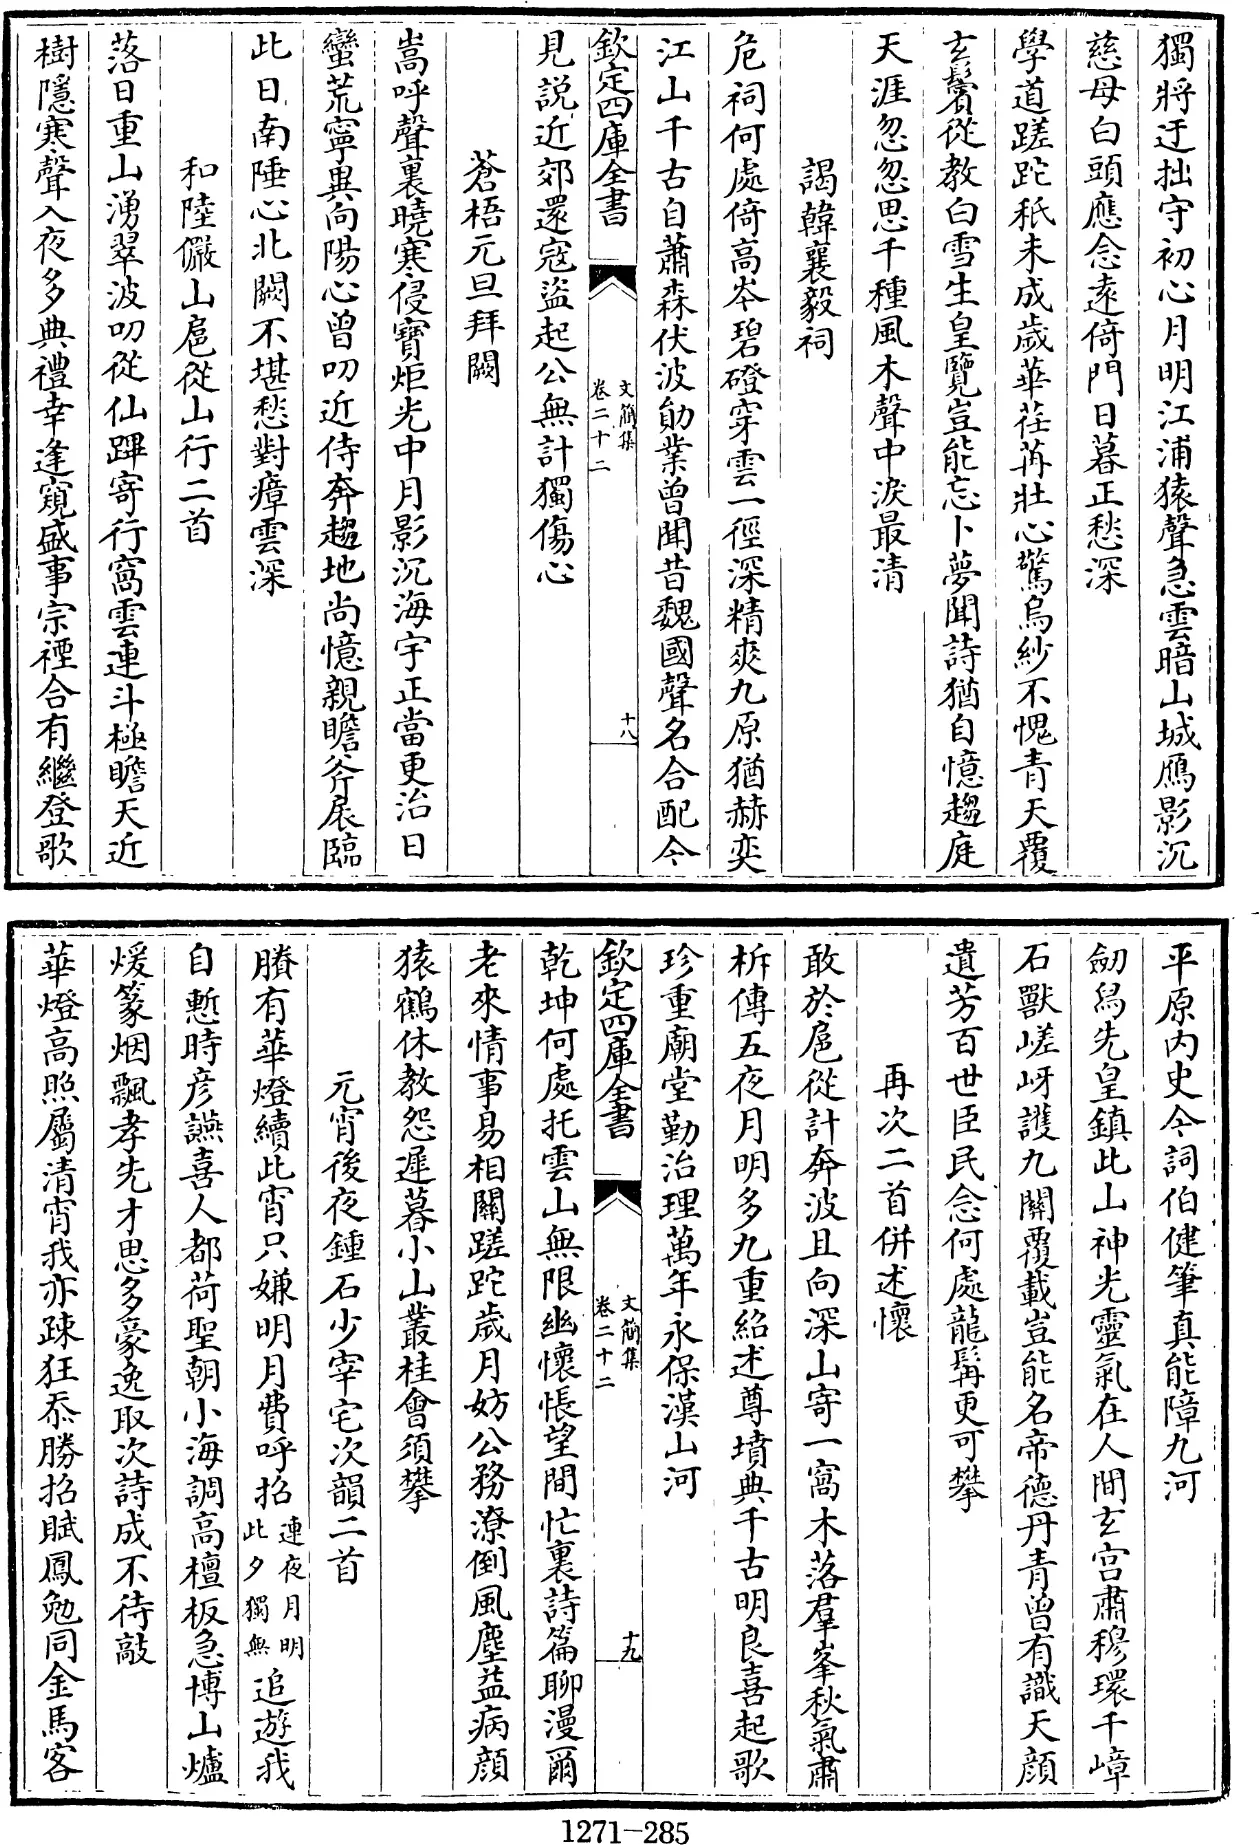 獨將迂拙守初心月明江浦猿聲急雲暗山城鴈影沉
慈母白頭應念遠倚門日暮正愁深
學道蹉跎秖未成歲華荏苒壯心驚烏紗不愧青天覆
玄鬢從教白雪生皇覽豈能忘卜夢聞詩猶自憶趨庭
天涯忽忽思千種風木聲中淚最清
謁韓襄毅祠
危祠何處倚高岑碧磴穿雲一徑深精爽九原猶赫奕
江山千古自蕭森伏波勛業曾聞昔魏國聲名合配今
欽定四庫全書
文簡集
卷二十二
十八
見説近郊還寇盜起公無計獨傷心
蒼梧元旦拜闕
嵩呼聲裏曉寒侵寶炬光中月影沉海宇正當更治日
蠻荒寧異向陽心曾叨近侍奔趨地尚憶親瞻斧扆臨
此日南陲心北闕不堪愁對瘴雲深
和陸儼山扈從山行二首
落日重山湧翠波叨從仙蹕寄行窩雲連斗極瞻天近
樹隱寒聲入夜多典禮幸逢窺盛事宗禋合有繼登歌
平原内史今詞伯健筆真能障九河
劒舄先皇鎮此山神光靈氣在人間玄宫肅穆環千嶂
石獸嵯岈護九關覆載豈能名帝德丹青曾有識天顔
遺芳百世臣民念何處龍髯更可攀
再次二首併述懷
敢於扈從計奔波且向深山寄一窩木落羣峯秋氣肅
柝傳五夜月明多九重紹述尊墳典千古明良喜起歌
珍重廟堂勤治理萬年永保漢山河
欽定四庫全書
文簡集
卷二十二
十九
乾坤何處托雲山無限幽懷悵望間忙裏詩篇聊漫爾
老來情事易相關蹉跎歲月妨公務潦倒風塵益病顔
猿鶴休教怨遲暮小山叢桂會須攀
元宵後夜鍾石少宰宅次韻二首
賸有華燈續此宵只嫌明月費呼招連夜月明此夕獨無追遊我
自慙時彦讌喜人都荷聖朝小海調高檀板急博山爐
煖篆烟飄孝先才思多豪逸取次詩成不待敲
華燈高照屬清宵我亦疎狂忝勝招賦鳳勉同金馬客
1271-285